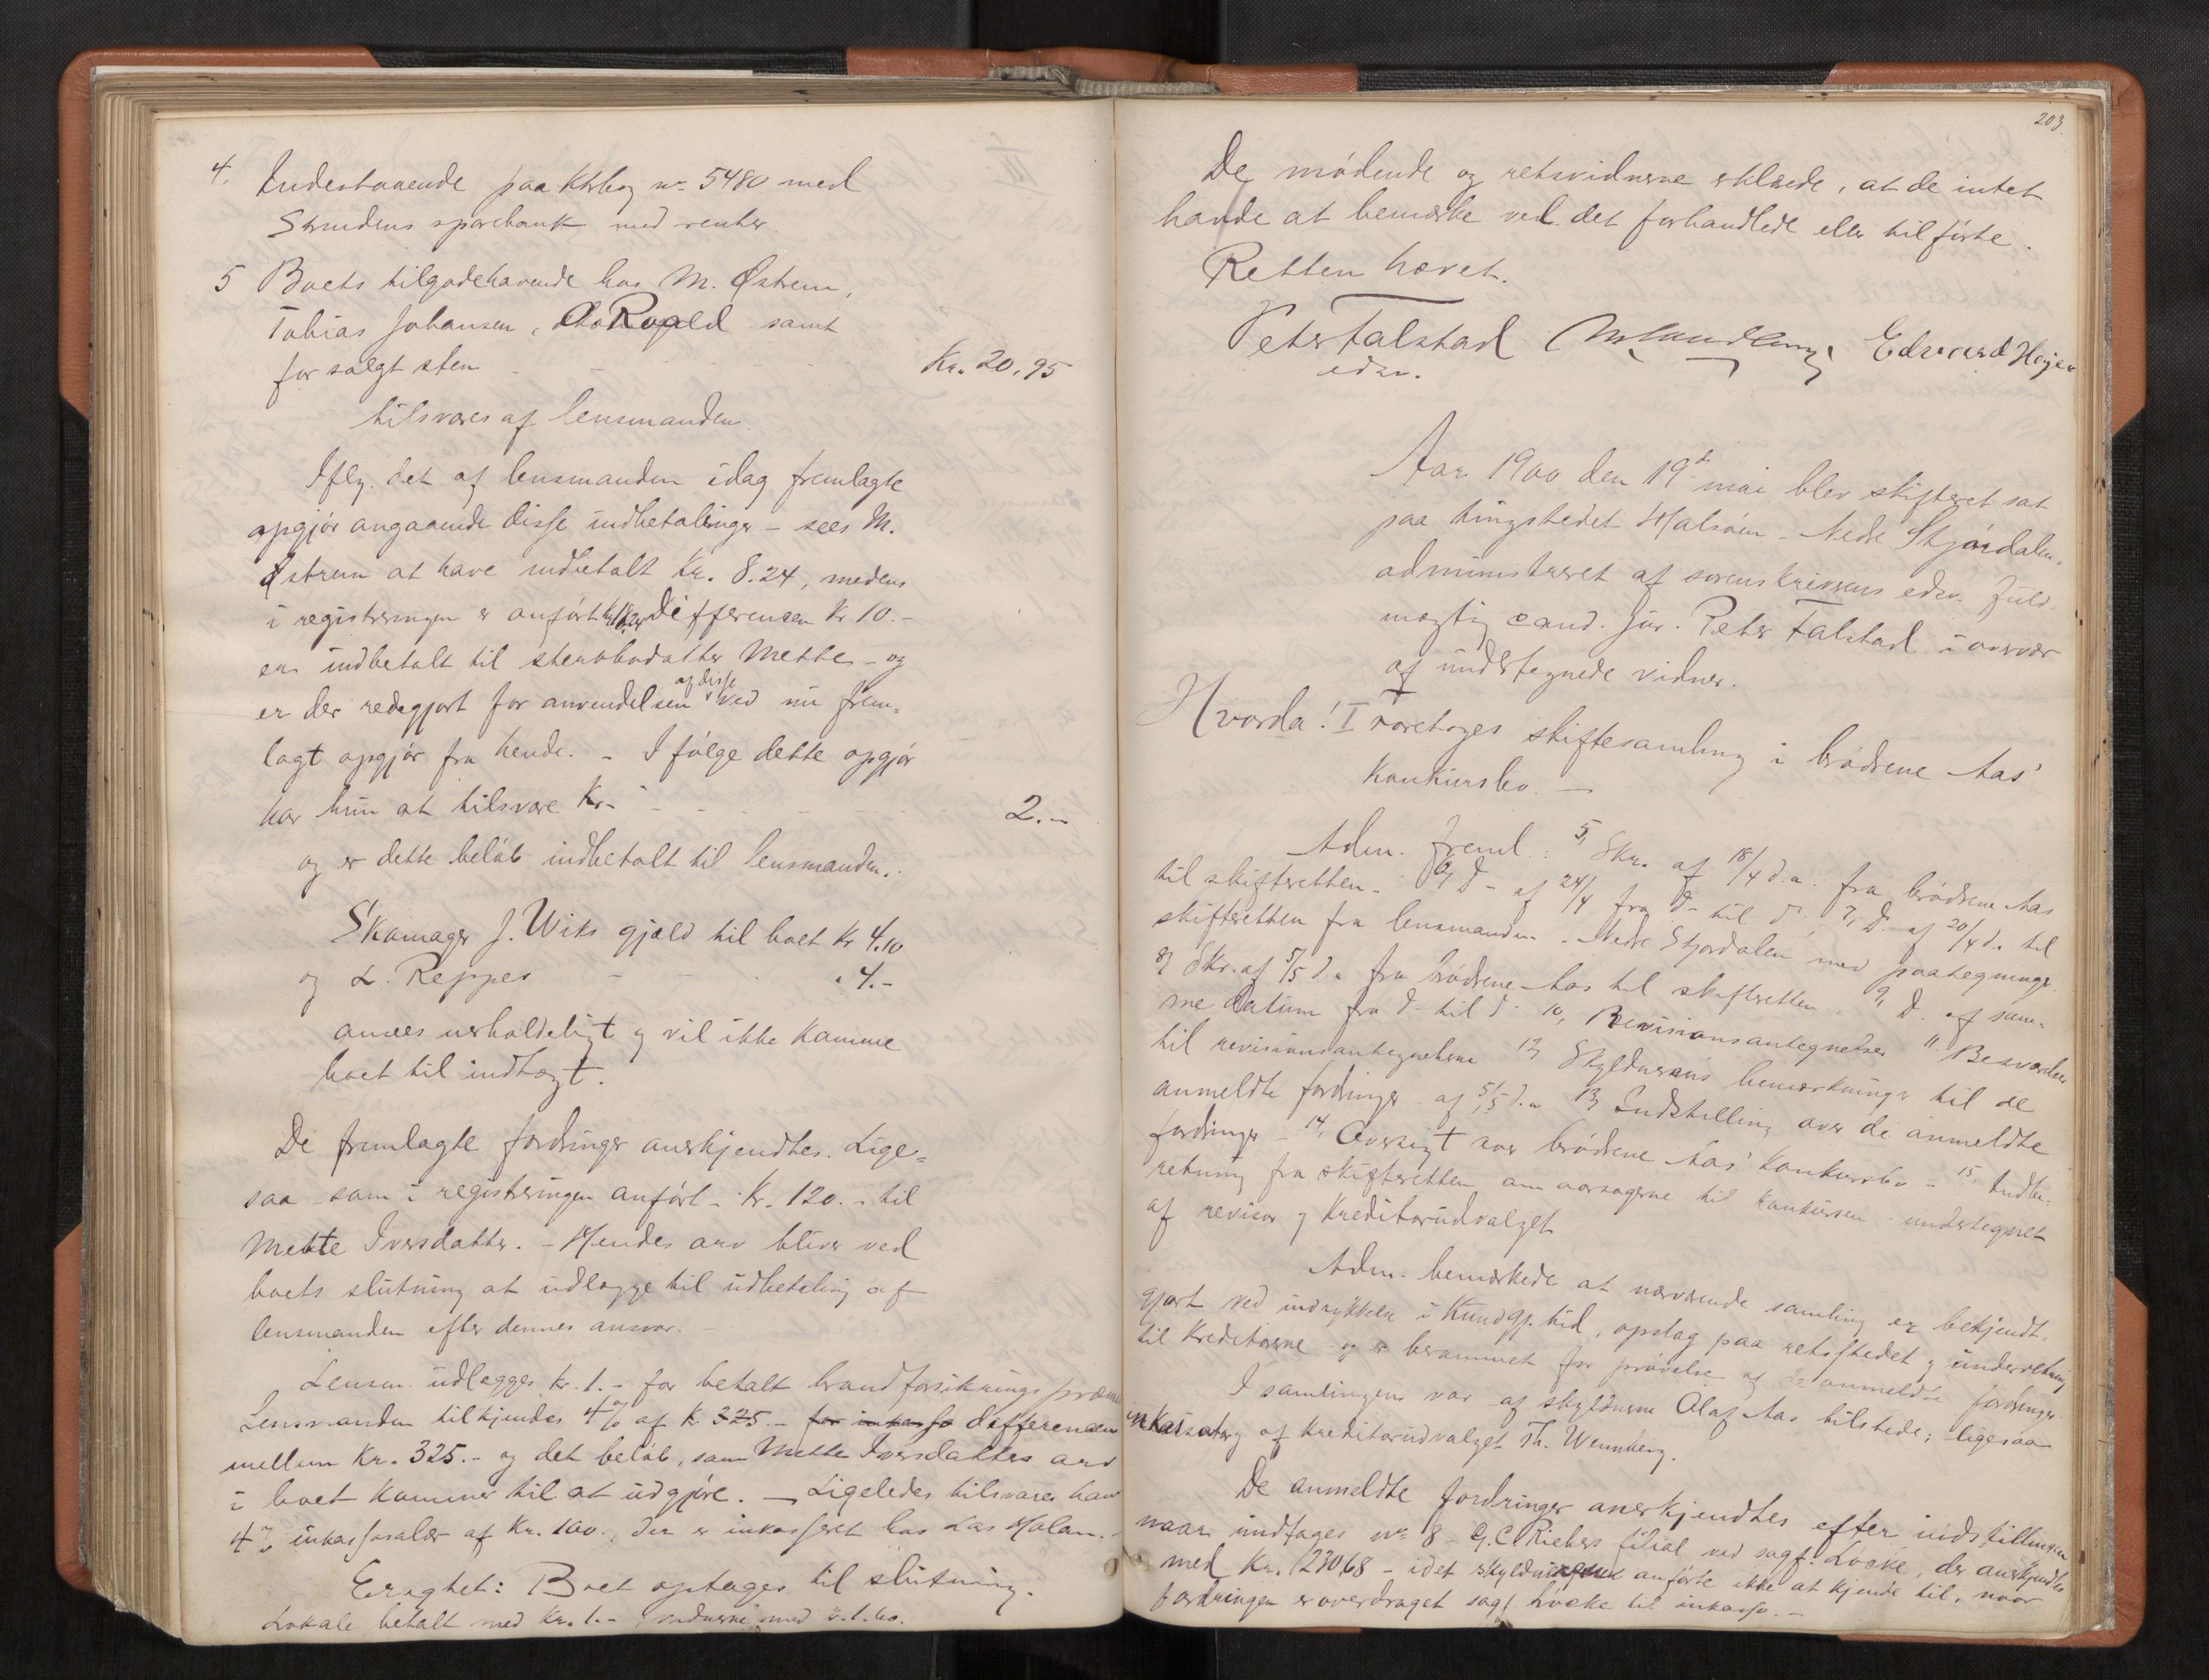 4. Indestaaende paa Ktrbog no 5480 med
Strindens sparebank med renter.
5 Boets tilgodehavende hos M. Østrem,
Tobias Johansen, Roald samt
for solgt sten - - - Kr. 20,95
tilsvares af lensmanden.
Iflg. det af lensmanden idag fremlagte
opgjør angaaende disse indbetalinger - sees M.
Østrem at have indbetalt Kr. 8.24, medens
i registreringen er anført kr 18,24 Differencen Kr 10.-
er indbetalt til sterbbodatter Mette - og
er der redegjort for anvendelsen af disse ved nu frem-
lagt opgjør fra hende. - Ifølge dette opgjør
har hun at tilsvare Kr. - - - 2.-
og er dette beløb indbetalt til lensmanden.
Skomager J. Wiks gjæld til boet Kr 4.10
og L. Reppes - - " 4.-
ansees uerholdeligt og vil ikke komme
boet til indtægt.
De fremlagte fordringer anerkjendtes. Lige-
saa - som i registreringen anført - Kr. 120.- til
Mette Iversdatter. - Hendes arv bliver ved
boets slutning at udlægge til udbetaling af
lensmanden efter dennes ansvar.
Lensm. udlægges kr. 1.- for betalt brandforsikringspræmie
Lensmanden tilkjendes 4% af kr 325.- for inkasso differencen
mellem Kr. 325.- og det beløb, som Mette Iversdatters arv
i boet kommer til at udgjøre. - Ligeledes tilsvares ham
4% inkassosalær af Kr. 100., der er inkasseret hos Lars Molan.-
Eragtet: Boet optages til slutning.
Lokale betalt med Kr. 1.- vidnerne med k. 1.60.
203.
De mødende og retsvidnerne erklærede, at de intet
havde at bemærke ved det forhandlede eller tilførte.
Retten hævet.
Peter Falstad Edvard Høyen
edsv.
Aar 1900 den 19de mai blev skifteret sat
paa tingstedet Halsøen - Nedre Stjørdalen,
administreret af sorenskriverens edsv. fuld-
mægtig cand. jur. Peter Falstad i overvær
af undertegnede vidner.
Hvorda! I Foretoges skiftesamling i brødrene Aas'
Konkursbo. -
Adm. freml.: 5, Skr. af 18/4 d.a. fra brødrene Aas
til skifteretten - 6, D- af 24/4 fra D- til D- 7, D- af 20/4 d.a til
skifteretten fra lensmanden i Nedre Stjørdalen med paategninger.
8, Skr. af 5/5 d.a fra brødrene Aas til skifteretten, 9, D. af sam-
me datum fra D- til D- 10, Revisionsantegnelser 11. Besvarelser
til revisionsantegnelserne 12, Skyldnerens bemærkninger til de
anmeldte fordringer af 5/5 d.a 13, Indstilling over de anmeldte
fordringer - 14, Oversigt over brødrene Aas' Konkursbo - 15, Indbe-
retning fra skifteretten om aarsagerne til konkursen - undertegnet
af revisor og Kreditorudvalget
Adm. bemærkede at nærværende samling er bekjendt-
gjort ved indrykkelse i Kundgj. tid, opslag paa retsstedet og underretning
til Kreditorerne og er berammet for prøvelse af de anmeldte fordringer.
I samlingen var af skyldnerne Olaf Aas tilstede; ligesaa
af Kreditorudvalget Th. Wennberg.
De anmeldte fordringer anerkjendtes efter indstillingen
naar undtages no 8 - G. C. Riebers filial ved sagf. Løcke, der anerkjendtes
med Kr. 1230,68 - idet skyldneren anførte ikke at kjende til, naar
fordringen er overdraget sagf. Løcke til inkasso. -